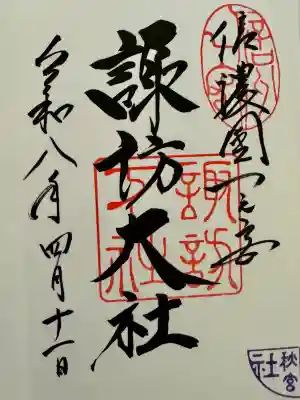 信濃國一之宮
諏訪大社
令和八年四月十一日
諏訪大社
秋宮
社